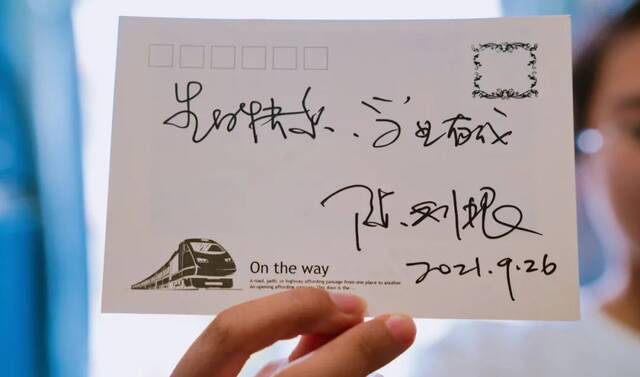 生日快乐、学业有成
陈利根
2021.9.26
On the way
A road, path, or highway affording passage from one place to another
An opening affording passage: This door is the ...